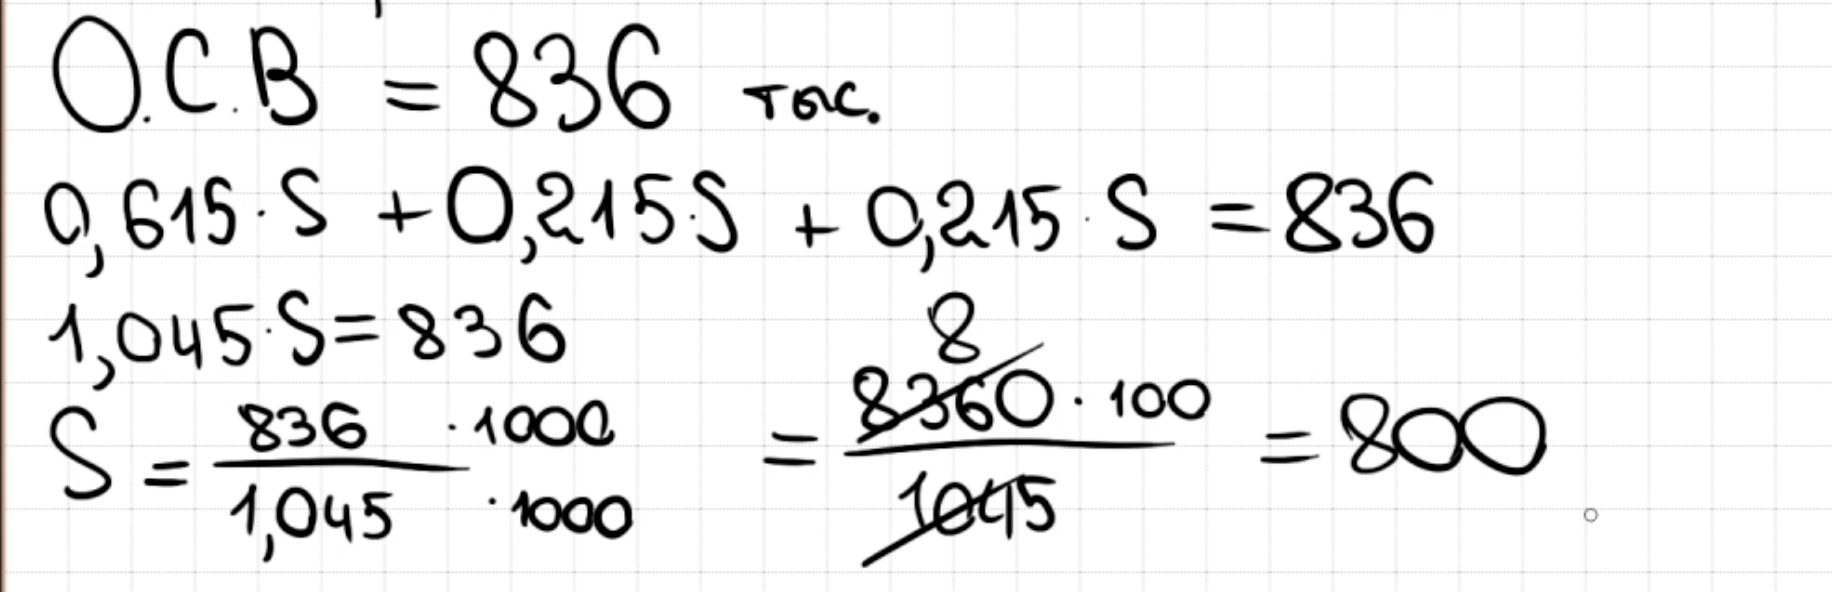 О.С.В = 836 тыс.
0,615·S + 0,215·S + 0,215·S = 836
1,045·S = 836
S = 836 ·1000 / 1,045 ·1000 = 8 8360·100 / 1045 = 800